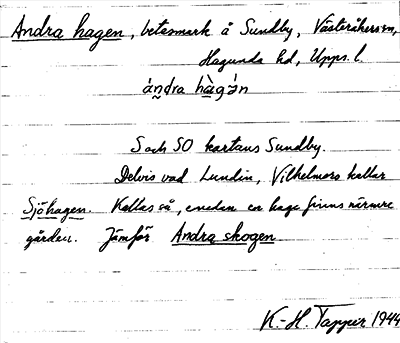 Andra hagen, betesmark å Sundby, Västeråkers sn,
Hagunda hd, Upps. l.
ándra hàgə́n
S och SO kartans Sundby.
Delvis vad Lundin, Vilhelmsro kallar
Sjöhagen. Kallas så, enedan en hage finns närmre
gården. Jämför Andra skogen
K.-H. Tappir 1944